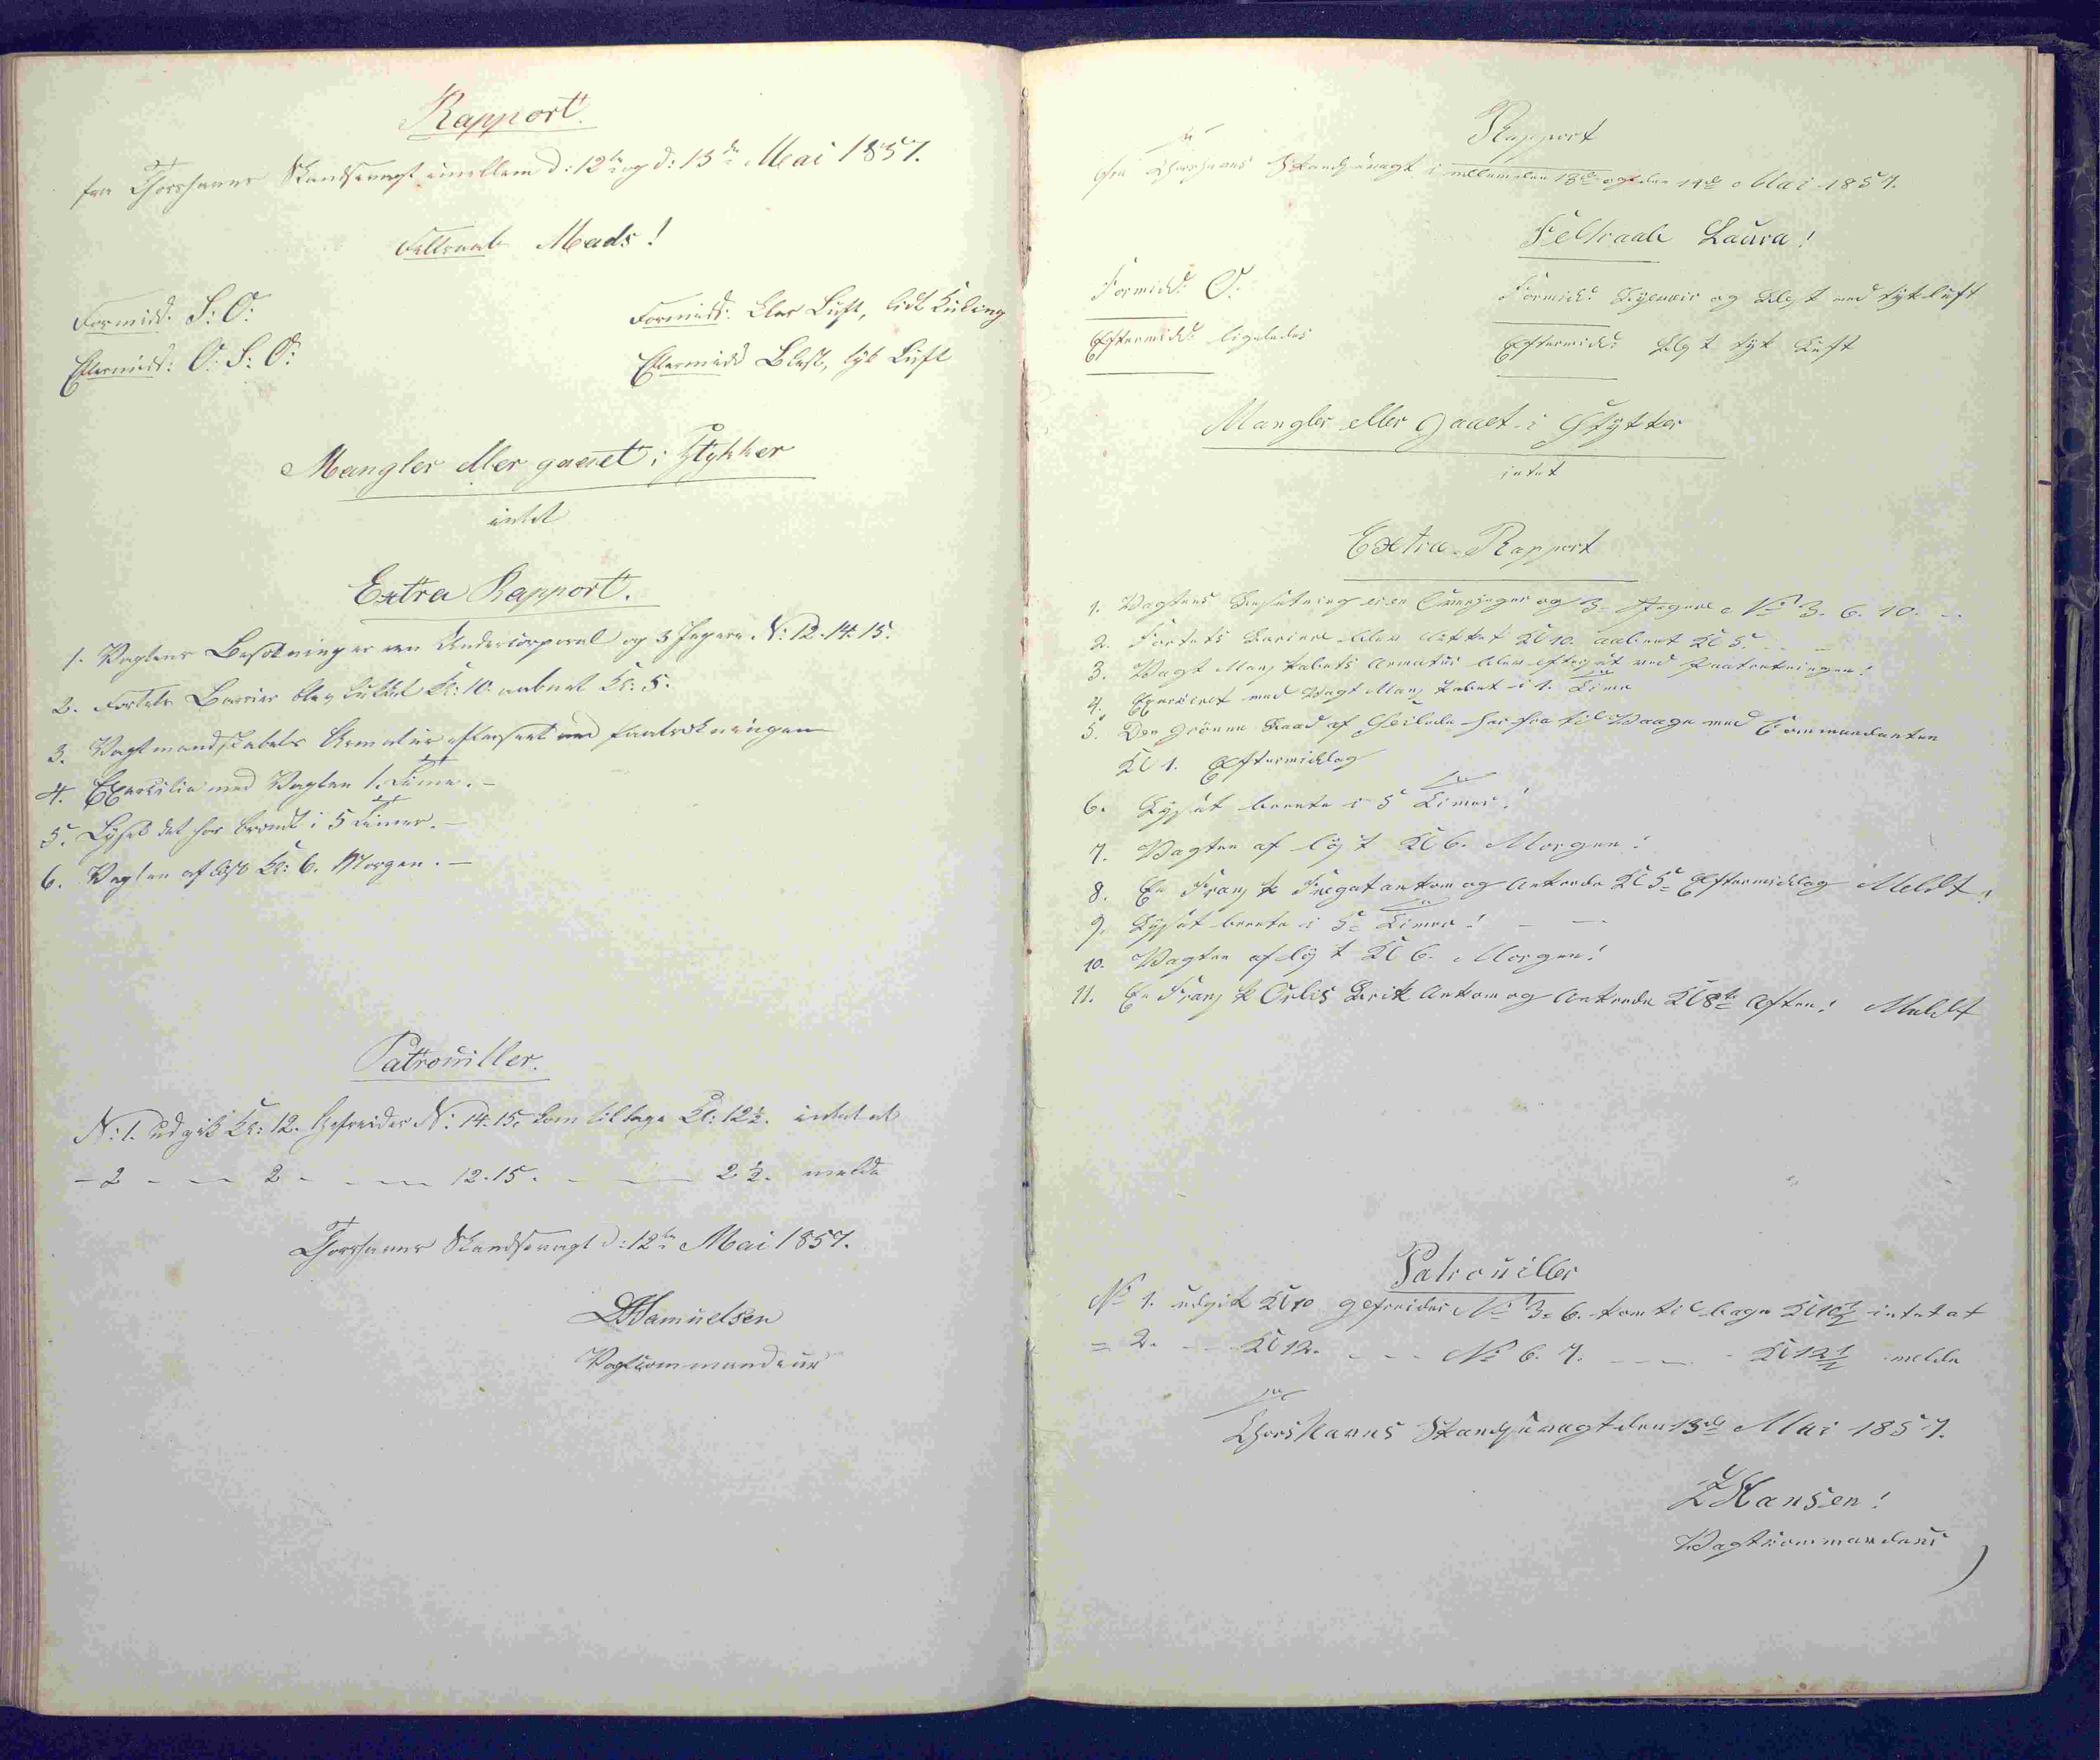 Rapport.
fra Thorshavns Skandsevagt imellem d: 12te og d: 13de Mai 1857.
Feltraab Mads!
Formidd. S: O:
Formidd: klar Luft, lidt Kuling
Eftermidd: O: S: O:
Eftermidd Blæst, tyk Luft
Mangler eller gaaet i Stykker
intet
Extra Rapport.
1. Vagtens Besætning er een Undercorporal og 3 Jægere N: 12. 14. 15.
2. Fortets Barriere blev lukket Kl: 10. aabnet Kl: 5.
3. Vagtmandskabets Armatur efterseet ved Paatrækningen
4. Exercitie med Vagten 1. Time. –
5. Lyset det har brændt i 5 Timer. –
6. Vagten afløst Kl: 6. Morgen. –
Patrouiller.
N: 1. udgik Kl: 12. Gefreider N: 14. 15. kom tilbage Kl: 12½. intet at
– 2 – – 2 – – – 12. 15. – – – 2½. melde
Thorshavns Skandsevagt d: 12te Mai 1857.
Samuelsen
Vagtcommandeur
Rapport
fra Thorshavns Skandsevagt imellem den 13de og den 14de Mai 1857.
Feltraab Laura!
Formidd: O:
Formidd: og Blæst med tyk Luft
Eftermidd: ligeledes
Eftermidd: Blæst tyk Luft
Mangler eller gaaet i Stykker
intet
Extra Rapport
1. Vagtens Besætning er en og 3 Jægere No 3. 6. 10. –
2. Fortets Bariere blev lukket Kl 10. aabnet Kl 5. – –
3. Vagt Mandskabets Armatur blev efterset ved Paatrækningen!
4. Exerceret med Vagt Mandskabet i 1. Time
5. Den grønne Baad af her fra til Waage med Commandanten
Kl 1. Eftermiddag
6. Lyset brænte i 5 Timer!
7. Vagten afløst Kl 6. Morgen!
8. En Fransk Fregat ankom og Ankrede Kl 5 Eftermiddag Meldt!
9. Lyset brænte i 5 Timer! – –
10. Vagten afløst Kl 6. Morgen!
11. En Fransk Orlis Brik Ankom og Ankrede Kl 8te Aften! Meldt
Patrouiller
No 1. udgik Kl 10 gefreider No 3. 6. kom tilbage Kl 10½ intet at
= 2. – Kl 12. – – – No 6. 7. – – – Kl 12½ melde
Thorshavns Skandsevagt den 13de Mai 1857.
Z Hansen!
Vagtcommandeur